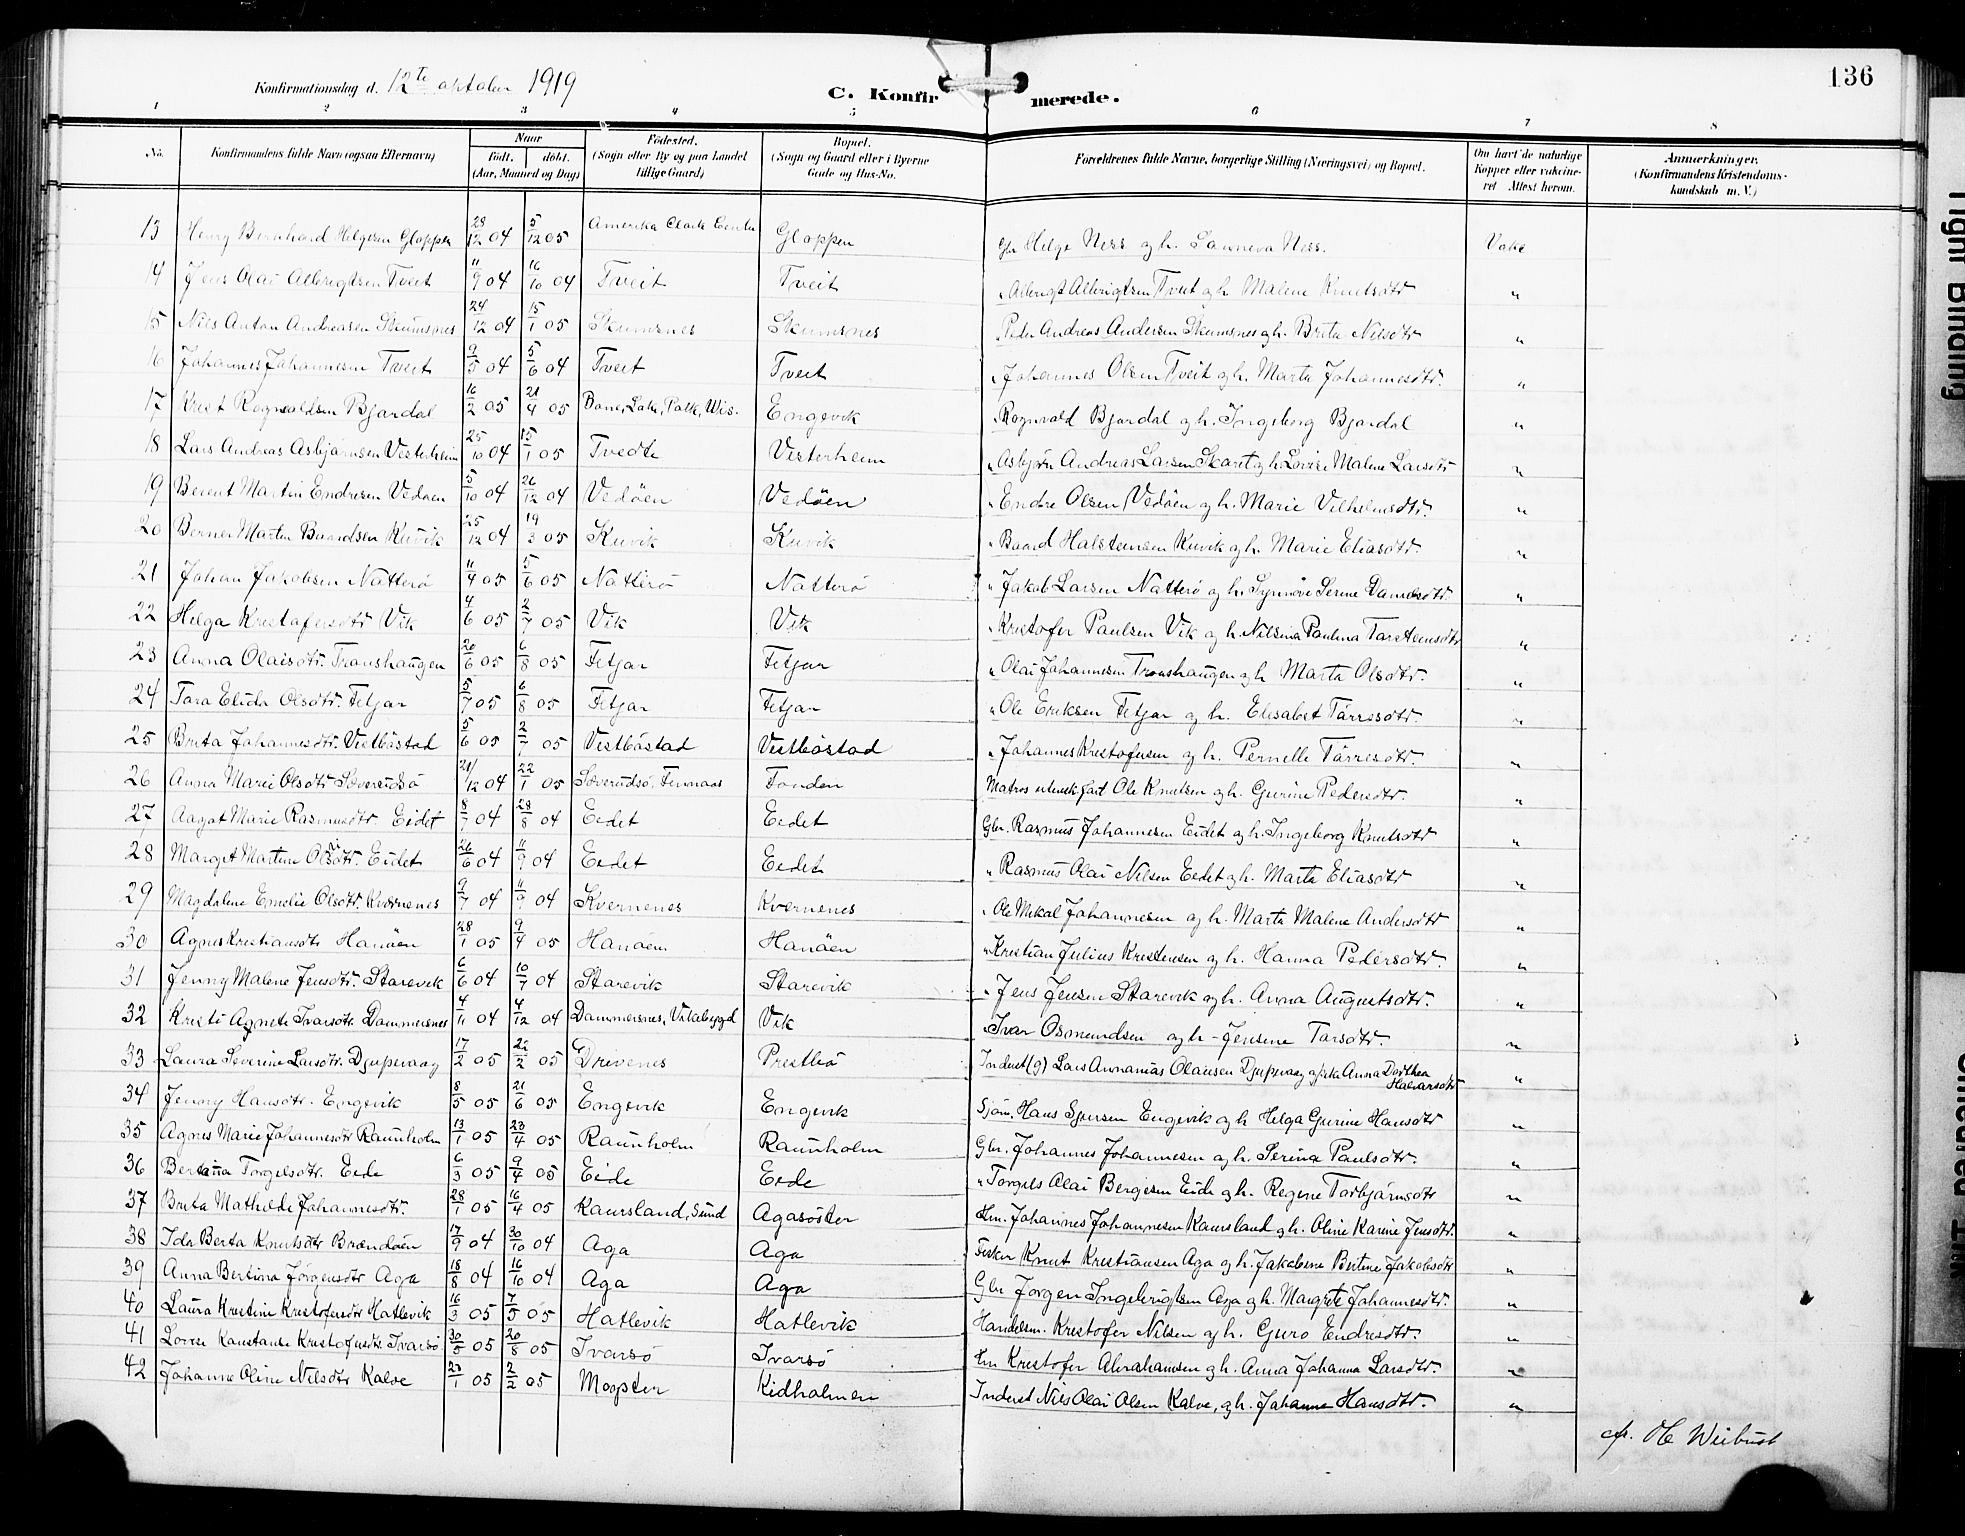 136
Konfirmationsdag d. 12te oktober 1919
C. Konfirmerede.
1 2 3 4 5 6 7 8
No. Konfirmandens fulde Navn (ogsaa Efternavn) Naar født. døbt. (Aar, Maaned og Dag) Fødested. (Sogn eller By og paa Landet tillige Gaard) Bopæl. (Sogn og Gaard eller i Byerne Gade og Hus-No. Forældrenes fulde Navne, borgerlige Stilling (Næringsvei) og Bopæl. Om havt de naturlige Kopper eller vakcineret Attest herom. Anmærkninger. (Konfirmandens Kristendomskundskab m. V.)
13 Henry Bernhard Helgesen Gloppen 28/12 04 5/12 05 Amerika Clark Gloppen Gbr Helge Ness og h. Ness. Vakc
14 Jens Olai Albrigtsen Tveit 11/9 04 16/10 04 Tveit Tveit " Albrigt Albrigtsen Tveit og h. Malene Knutsdtr "
15 Nils Anton Andreasen Skumsnes 24/12 04 15/1 05 Skumsnes Skumsnes " Peder Andreas Andersen Skumsnes og h. Brita Nilsdtr "
16 Johannes Johannesen Tveit 9/5 04 5/6 04 Tveit Tveit " Johannes Olsen Tveit og h. Marta Johannesdtr. "
17 Krist Rognvaldsen Bjørdal 16/2 05 21/4 05 Lake, Polk, Wis. Engevik " Rognvald Bjørdal og h. Ingeborg Bjørdal "
18 Lars Andreas Asbjørnsen Vesterheim 25/10 04 15/1 05 Tvedte Vesterheim " Asbjørn Andreas Larsen Skaret og h. Lovise Malene Larsdtr "
19 Berent Martin Endresen Vedøen 5/10 04 26/12 04 Vedøen Vedøen " Endre Olsen Vedøen og h. Marie Vilhelmsdtr. "
20 Berner Martin Baardsen Kuvik 25/12 04 19/3 05 Kuvik Kuvik " Baard Halsteinsen Kuvik og h. Marie Eliasdtr. "
21 Johan Jakobsen Natterø 11/4 05 5/6 05 Natterø Natterø " Jakob Larsen Natterø og h. Synnøve Serine Danielsdtr. "
22 Helga Kristofersdtr Vik 4/6 05 2/7 05 Vik Vik " Kristofer Paulsen Vik og h. Nilsina Paulina Tarsteinsdtr "
23 Anna Olaisdtr. Transhaugen 20/6 05 6/8 05 Fitjar Fitjar " Olai Johannesen Transhaugen og h. Marta Olsdtr. "
24 Tora Elida Olsdtr. Fitjar 5/7 05 6/8 05 Fitjar Fitjar " Ole Eriksen Fitjar og h. Elisabet Tørresdtr. "
25 Brita Johannesdtr. Vestbøstad 5/6 05 2/7 05 Vestbøstad Vestbøstad " Johannes Kristofersen og h. Pernelle Tørresdtr. "
26 Anna Marie Olsdtr Siverudsø 21/12 04 22/1 05 Siverudsø, Finnaas Tonden Matros utenriksfart Ole Knutsen og h. Gurine Pedersdtr. "
27 Aagot Marie Rasmusdtr. Eidet 8/7 04 28/8 04 Eidet Eidet Gbr. Rasmus Johannesen Eidet og h. Ingeborg Knutsdtr "
28 Marget Martine Olaisdtr. Eidet 26/6 04 11/9 04 Eidet Eidet " Rasmus Olai Nilsen Eidet og h. Marta Eliasdtr "
29 Magdalene Emelie Olsdtr. Kvernenes 9/7 04 11/9 04 Kvernenes Kvernenes " Ole Mikal Johannesen og h. Marta Malene Andersdtr "
30 Agnes Kristiansdtr Hanøen 28/1 05 9/4 05 Hanøen Hanøen " Kristian Julius Kristensen og h. Hanna Pedersdtr. "
31 Jenny Malene Jensdtr. Starevik 6/6 04 10/7 04 Starevik Starevik " Jens Jensen Starevik og h. Anna Augustsdtr. "
32 Kristi Agnete Ivarsdtr Dammersnes 4/11 04 4/12 04 Dammersnes, Vikebygd Vik " Ivar Osmundsen og h. Jensine Tarsdtr. "
33 Laura Severine Larsdtr. Djupevaag 17/2 05 22/2 05 Drivenes Prestbø Inderst (g) Lars Annanias Olausen Djupevaag og pike Anna Dorthea Halvarsdtr "
34 Jenny Hansdtr. Engevik 8/5 05 21/6 05 Engevik Engevik Sjøm. Hans Sjursen Engevik og h. Helga Gurine Hansdtr "
35 Agnes Marie Johannesdtr Raunholm 13/1 05 23/4 05 Raunholm Raunholm Gbr. Johannes Johannesen og h. Serina Paulsdtr. "
36 Bertina Torgelsdtr. Eide 6/3 05 9/4 05 Eide Eide " Torgels Olai Bergesen Eide og h. Regine Torbjørnsdtr "
37 Brita Mathilde Johannesdtr. 28/1 05 16/4 05 Kausland, Sund Agasøster Hm. Johannes Johannesen Kausland og h. Oline Karine Jensdtr. "
38 Ida Berta Knutsdtr Brandøen 17/9 04 30/10 04 Aga Aga Fisker Knut Kristiansen Aga og h. Jakobine Bertine Jakobsdtr "
39 Anna Bertina Jørgensdtr Aga 18/8 04 16/10 04 Aga Aga Gbr Jørgen Ingebrigtsen Aga og h. Margrete Johannesdtr. "
40 Laura Kristine Kristofersdtr Hatlevik 16/3 05 7/5 05 Hatlevik Hatlevik Handelsm. Kristofer Nilsen og h. Guro Endresdtr. "
41 Lovise Konstanse Kristofersdtr Ivarsø 30/5 05 20/8 05 Ivarsø Ivarsø Hm Kristofer Abrahamsen og h. Anna Johanna Larsdtr. "
42 Johanne Oline Nilsdtr Kalve 23/1 05 2/2 05 Møgster Kidholmen Inderst Nils Olai Olsen Kalve, og h. Johanne Hansdtr. "
Weibust
Tight Binding